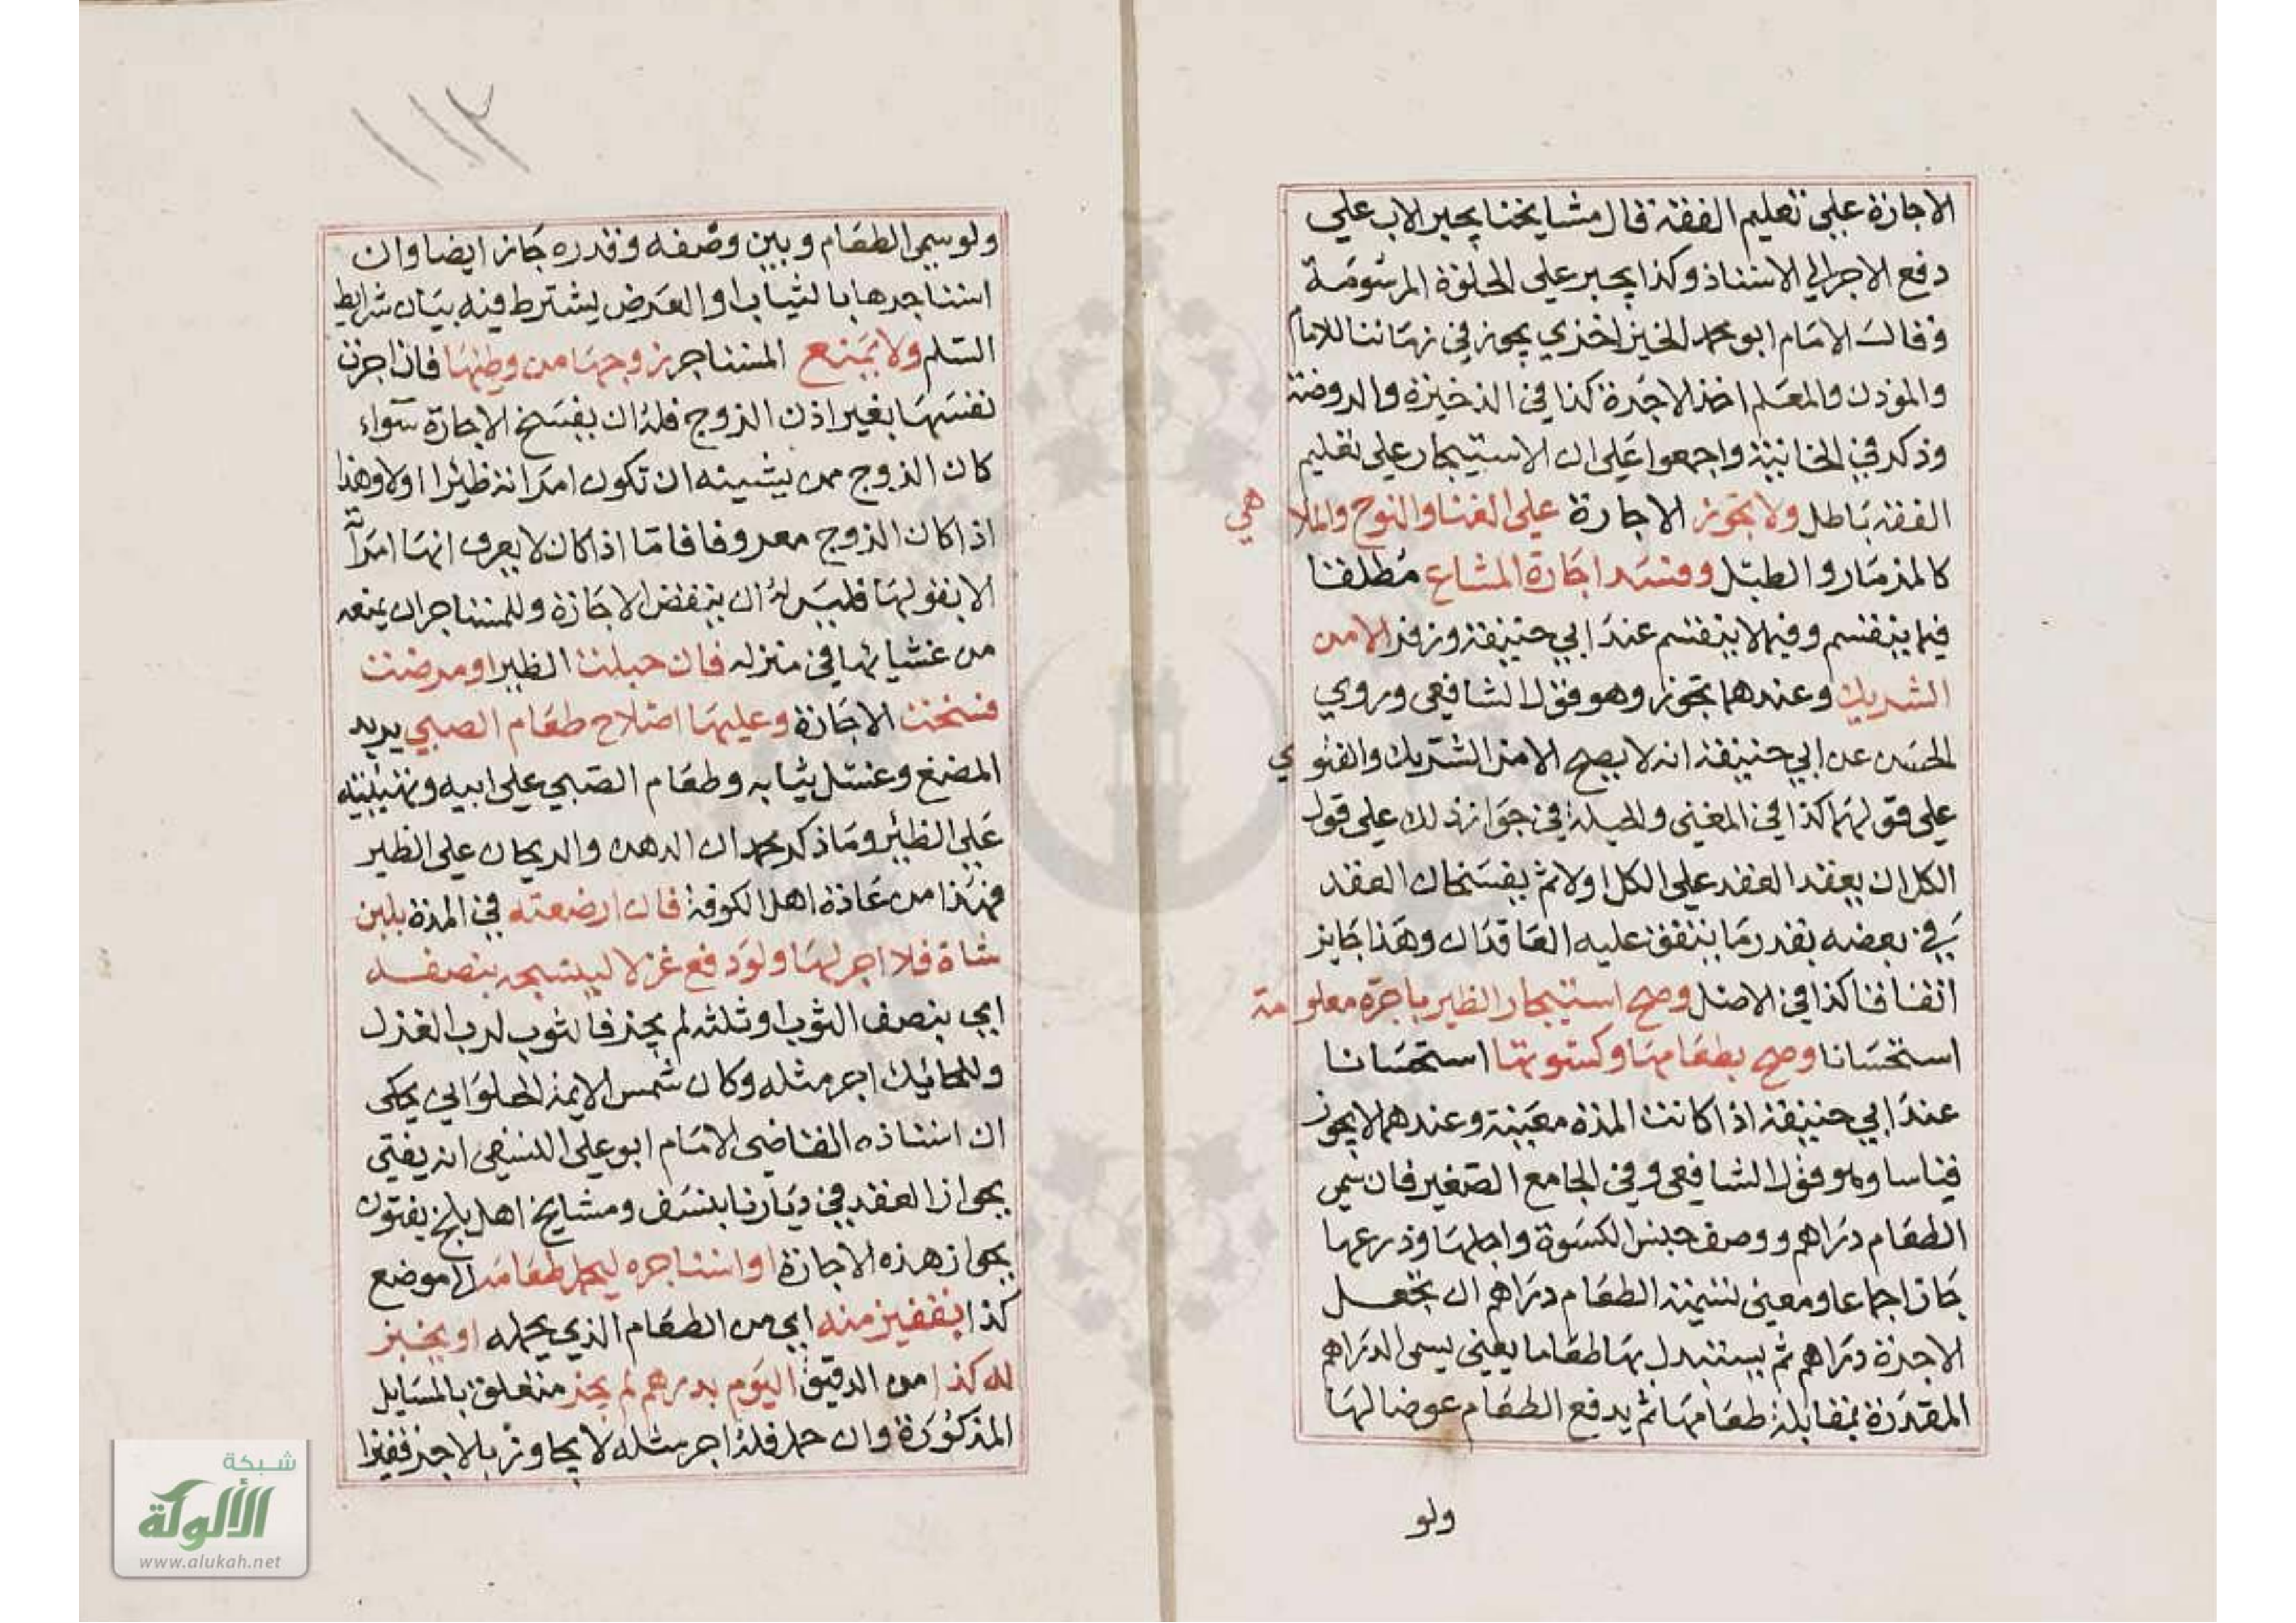 الاجارة علي تعليم الفقه قال مشايخنا يجبر الاب علي
دفع الاجر الي الاستاذ وكذا يجبر علي الحلوة المرسومة
وقال الامام ابو محمد الخيزاخزي يجوز في زماننا للامام
والموذن والمعلم اخذ الاجرة كذا في الذخيرة والروضة
وذكر في الخانية واجمعوا علي ان الاستيجار علي تعليم
الفقه باطل ولا تجوز الاجارة علي الغنا والنوح والملاهي
كالمزمار والطبل وفسد اجارة المشاع مطلقا
فيما ينقسم وفيما لا ينقسم عند ابي حنيفة وزفر الا من
الشريك وعندهما تجوز وهو قول الشافعي وروي
الحسن عن ابي حنيفة انه لا يصح الا من الشريك والفتوي
علي قولهما كذا في المغني والحيلة في جواز ذلك علي قول
الكل ان يعقد العقد علي الكل اولا ثم يفسخان العقد
في بعضه بقدر ما يتفق عليه العاقدان وهذا جايز
اتفاقا كذا في الاصل وصح استيجار الظير باجرة معلومة
استحسانا وصح بطعامها وكسوتها استحسانا
عند ابي حنيفة اذا كانت المدة معينة وعندهما لا يجوز
قياسا وهو قول الشافعي وفي الجامع الصغير فان سمي
الطعام دراهم ووصف جنس الكسوة واجلها وذرعها
جاز اجماعا ومعني تسمية الطعام دراهم ان تجعل
الاجرة دراهم ثم يستبدل بها طعاما يعني يسمي الدراهم
المقدرة بمقابلة طعامها ثم يدفع الطعام عوضا لها
ولو
١١٢
ولو سمي الطعام وبين وصفه وقدره جاز ايضا وان
استاجرها بالثياب او العرض يشترط فيه بيان شرايط
السلم ولا يمنع المستاجر زوجها من وطئها فان اجرت
نفسها بغير اذن الزوج فله ان يفسخ الاجارة سواء
كان الزوج ممن يشينه ان تكون امراته ظيرا اولا وهذا
اذا كان الزوج معروفا فاما اذا كان لا يعرف انها امراته
الا بقولها فليس له ان ينقض الاجارة وللمستاجر ان يمنعه
من غشيانها في منزله فان حبلت الظير او مرضت
فسخت الاجارة وعليها اصلاح طعام الصبي يريد
المضغ وغسل ثيابه وطعام الصبي علي ابيه وتهيئته
علي الظئر وما ذكر محمد ان الدهن والريحان علي الظير
فهذا من عادة اهل الكوفة فان ارضعته في المدة بلبن
شاة فلا اجر لها ولو دفع غزلا لينسجه بنصفه
اي بنصف الثوب او ثلثه لم يجز فالثوب لرب الغزل
وللحائك اجر مثله وكان شمس الايمة الحلواني يحكي
ان استاذه القاضي الامام ابو علي النسفي انه يفتي
بجواز العقد في ديارنا بنسف ومشايخ اهل بلخ يفتون
بجواز هذه الاجارة او استاجره ليحمل طعامه الي موضع
كذا بقفيز منه اي من الطعام الذي يحمله او يخبز
له كذا من الدقيق اليوم بدرهم لم يجز متعلق بالمسايل
المذكورة وان حمل فله اجر مثله لا يجاوز بالاجر قفيزا
شبكة
الألوكة
www.alukah.net